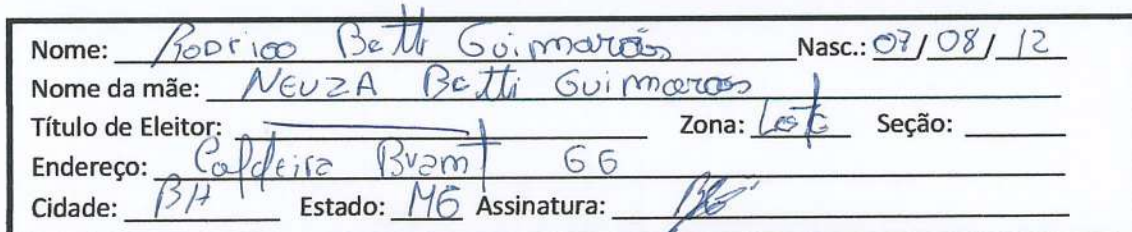 Nome: Rodrigo Betti Guimarães Nasc.: 07/08/12
Nome da mãe: NEUZA Betti Guimaraes
Título de Eleitor: Zona: Leste Seção:
Endereço: Caldeira Brant 66
Cidade: BH Estado: MG Assinatura: